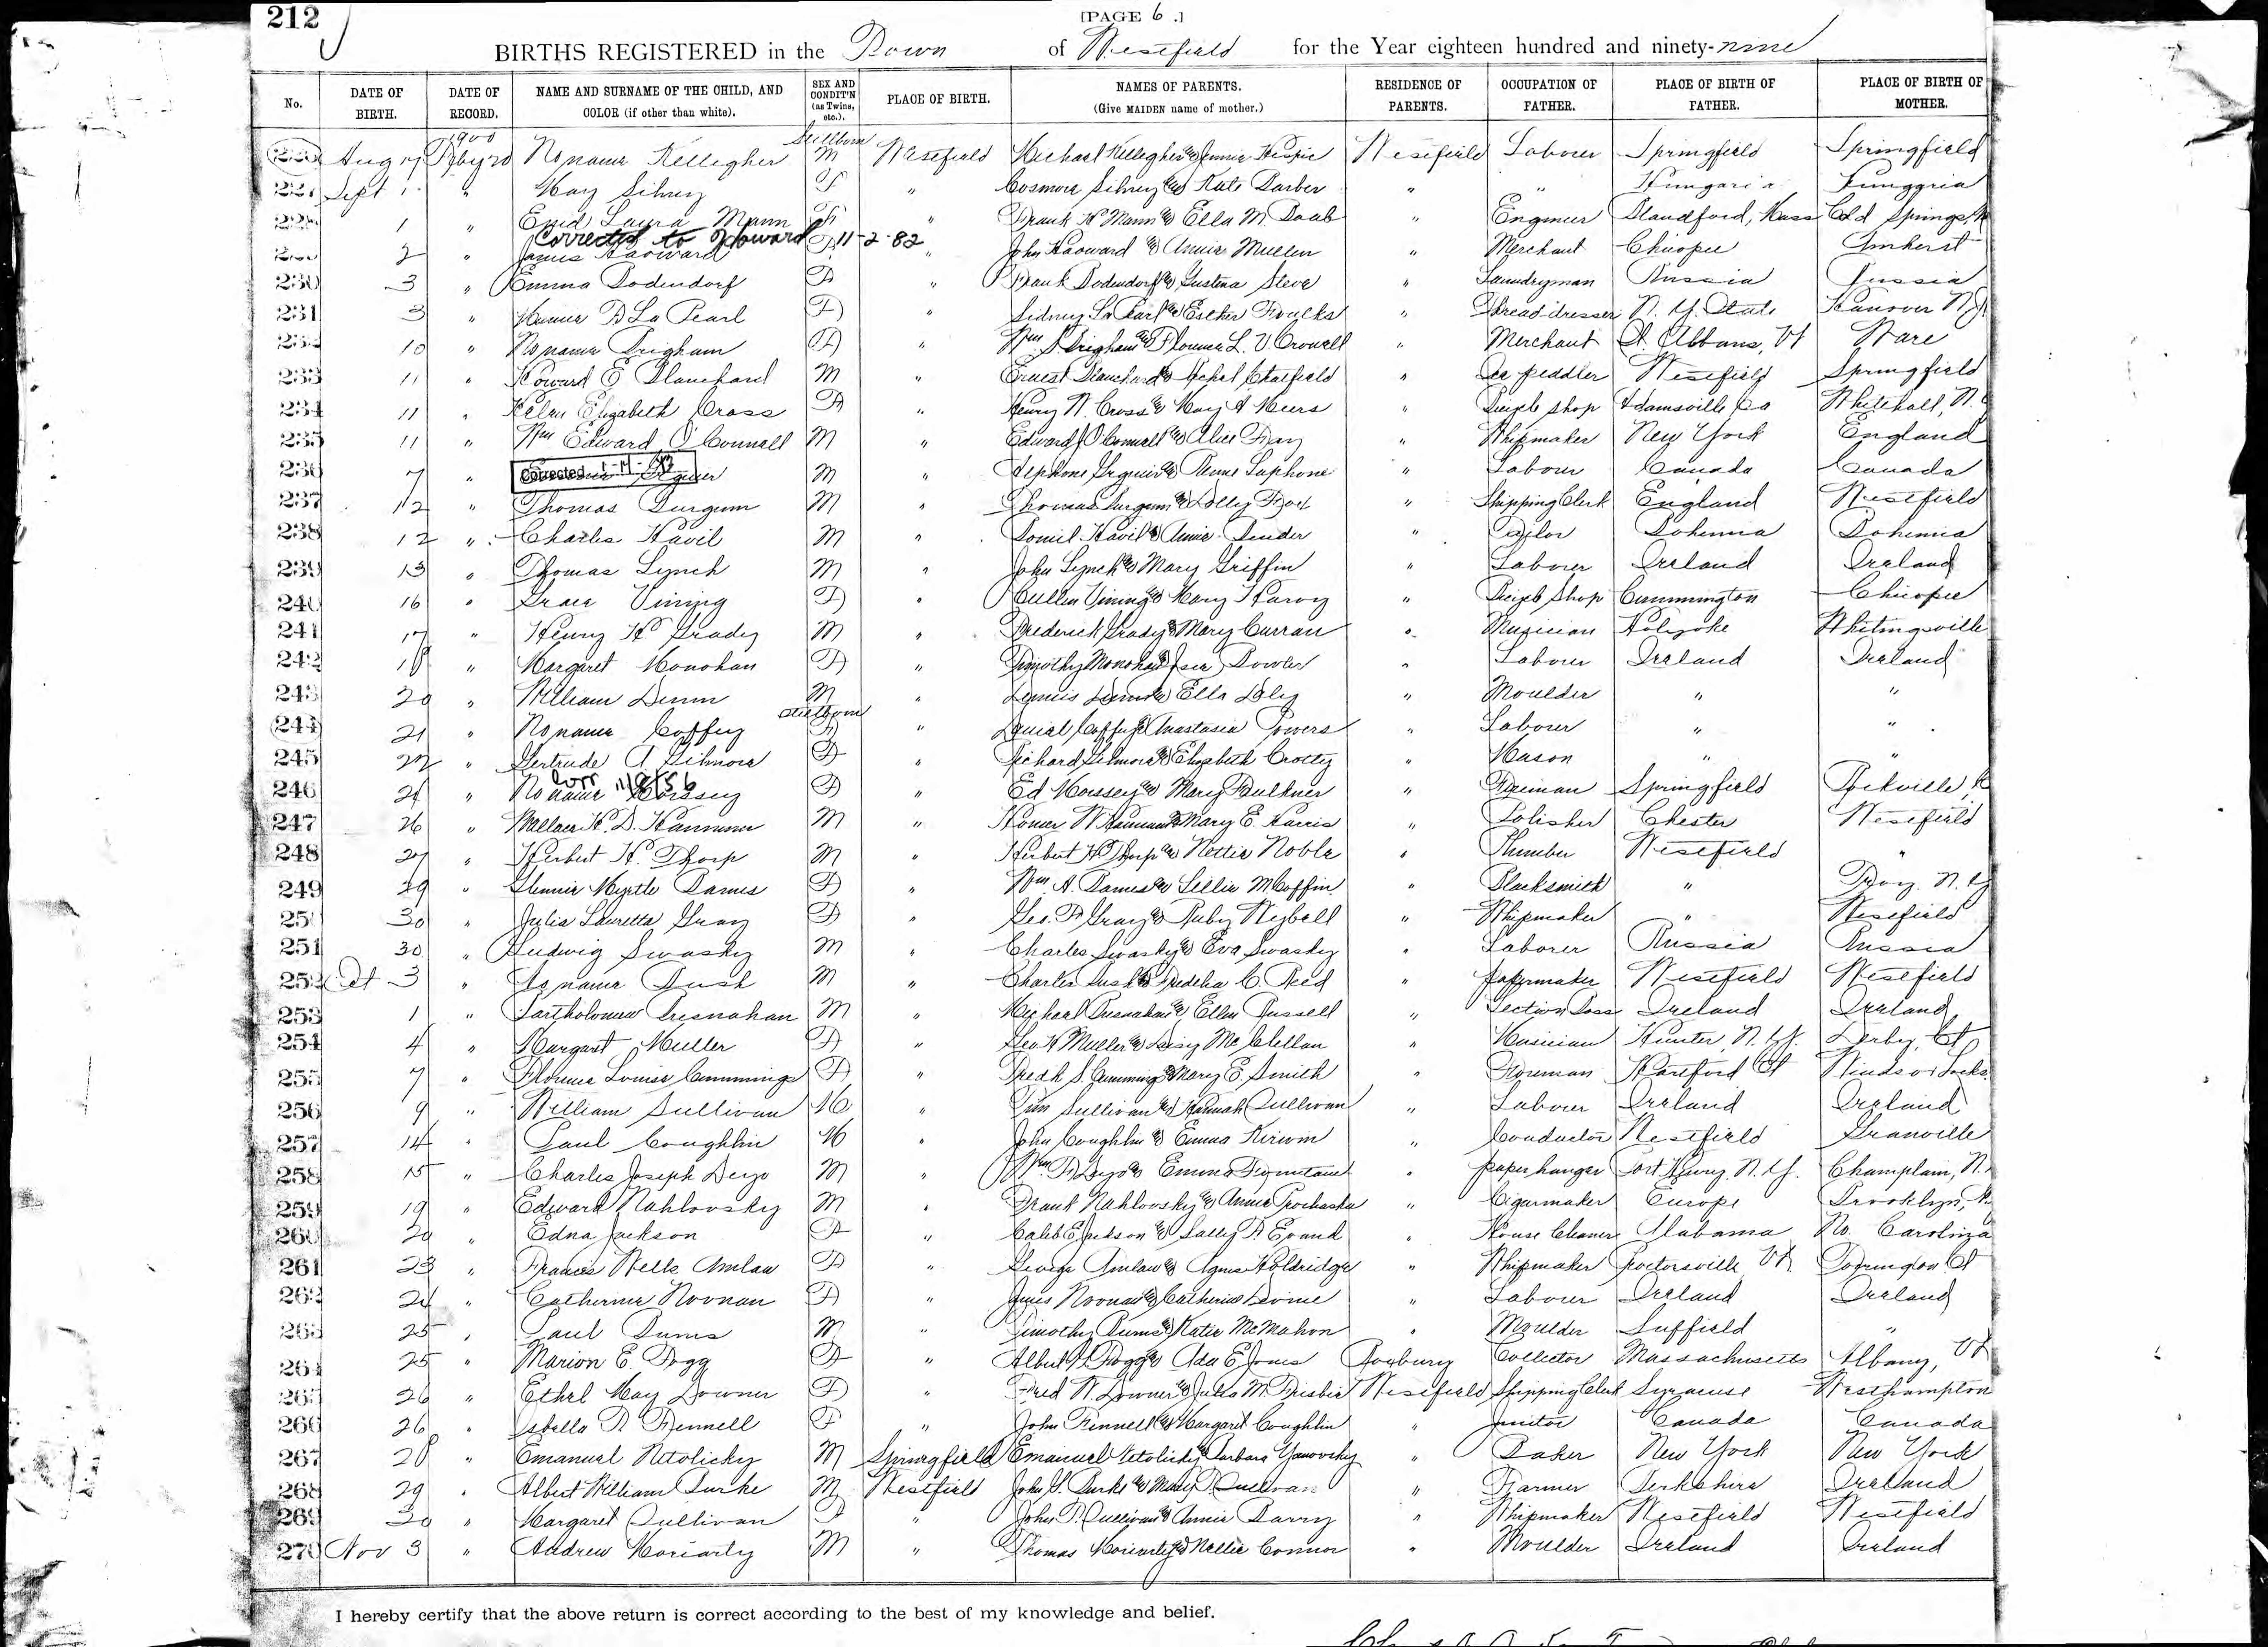 212
[PAGE 6.]
BIRTHS REGISTERED in the Town of Westfield for the Year eighteen hundred and ninety-nine
No. DATE OF BIRTH. DATE OF RECORD. NAME AND SURNAME OF THE CHILD, AND COLOR (if other than white). SEX AND CONDIT'N (as Twins, etc.). PLACE OF BIRTH. NAMES OF PARENTS. (Give MAIDEN name of mother.) RESIDENCE OF PARENTS. OCCUPATION OF FATHER. PLACE OF BIRTH OF FATHER. PLACE OF BIRTH OF MOTHER.
1900 Stillborn
Aug 17 Feby 20 No name Kellegher M Westfield Michael Kellegher & Jennie Westfield Laborer Springfield Springfield
Sept 1 " May F " & Kate Barber " "
1 " Enid Laura Mann F " Frank H Mann & Ella M. Daab " Engineer Blandford, Mass Cold Springs
Corrected to Howard 11-2-82
2 " James Haoward " John Haoward & Annie Mullen " Merchant Chicopee Amherst
230 3 " Emma Bodendorf F " Frank Bodendorf & Gustina Steve " Laundryman Russia Russia
231 3 " B La Pearl F " Sidney La Pearl & Esther Foulks " Thread dresser N. Y. State Hanover N.J.
10 " No name Brigham F " Wm Brigham & Florence L. V Crowell " Merchant St. Albans, Vt Ware
233 11 " Howard E Blanchard M " Ernest Blanchard & Chatfield " Ice peddler Westfield Springfield
234 11 " Helen Elizabeth Cross F " Henry N. Cross & May A Meers " Bicycle shop Adamsville Whitehall, N.
235 11 " Wm Edward O'Connell M " Edward J O'Connell & Alice Fay " Whipmaker New York England
236 7 " Corrected M " " Laborer Canada Canada
237 12 " Thomas Burgum M " Thomas Burgum & " Shipping Clerk England Westfield
238 12 " Charles Havil M " Havil & Annie " Tailor Bohemia Bohemia
239 13 " Thomas Lynch M " John Lynch & Mary Griffin " Laborer Ireland Ireland
240 16 " Grace Vining F " Cullen Vining & Mary Harvey " Bicycle Shop Cummington Chicopee
241 17 " Henry H Grady M " Frederick Grady & Mary Curran " Musician Holyoke Whitingsville
242 18 " Margaret Monohan F " Timothy Monohan & Fowler " Laborer Ireland Ireland
243 20 " William Dinnin M " & Ella Daley " Moulder " "
Stillborn
244 21 " No name Coffey F " Daniel Coffey & Anastasia Powers " Laborer " "
245 22 " Gertrude A Gilmore F " Richard Gilmore & Elizabeth Crotty " Mason " "
Corr 11/8/56
246 24 " No name Morssey F " Ed Morssey & Mary Faulkner " Fireman Springfield
247 26 " Wallace H. D. Hammon M " Homer W Hammon & Mary E. Harris " Polisher Chester Westfield
248 27 " Herbert H. Thorp M " Herbert H Thorp & Nettie Noble " Plumber Westfield "
249 29 " Glennie Myrtle Barnes F " Wm A. Barnes & Lillie M Coffin " Blacksmith " Troy, N.Y
30 " Julia Lauretta Gray F " Geo. F Gray & Ruby " Whipmaker " Westfield
251 30 " Ludwig Swasky M " Charles Swasky & Eva Swasky " Laborer Russia Russia
Oct 3 " No name Bush M " Charles Bush & Fredelia C. Reed " papermaker Westfield Westfield
253 1 " Bartholomew Bresnahan M " Michael Bresnahan & Ellen Russell " Section Boss Ireland Ireland
254 4 " Margaret Muller F " Geo. H Muller & Daisy McClellan " Musician Hunter, N.Y. Derby, Ct
255 7 " Florence Louise Cummings F " Fredk S. Cummings & Mary E. Smith " Foreman Hartford Ct Windsor Locks
256 9 " William Sullivan M " Tim Sullivan & Hannah Sullivan " Laborer Ireland Ireland
257 14 " Paul Coughlin M " John Coughlin & Emma Kirwin " Conductor Westfield Granville
258 15 " Charles Joseph Deyo M " Wm F Deyo & Emma Fountain " paper hanger Port Henry, N.Y. Champlain, N.
259 19 " Edward Nahlovsky M " Frank Nahlovsky & Annie Prochaska " Cigarmaker Europe Brooklyn, N.
260 20 " Edna Jackson F " Caleb E Jackson & Sally F " House Cleaner Alabama No. Carolina
261 23 " Frances Wells Amlaw F " George Amlaw & Agnes Holdridge " Whipmaker Proctorsville Vt Torrington Ct
262 24 " Catherine Noonan F " James Noonan & Catherine Devine " Laborer Ireland Ireland
263 25 " Paul Burns M " Timothy Burns & Katie McMahon " Moulder Suffield "
264 25 " Marion E. Fogg F " Albert H Fogg & Ada E Jones Roxbury Collector Massachusetts Albany, Vt
265 26 " Ethel May Downer F " Fred W. Downer & Julia M. Frisbie Westfield Shipping Clerk Syracuse Westhampton
266 26 " Isbella R Rennell F " John Rennell & Margaret Coughlin " Janitor Canada Canada
267 28 " Emanuel Netolicky M Springfield Emanuel Netolicky & Barbara Yanovsky " Baker New York New York
268 29 " Albert William Burke M Westfield John J. Burke & Mary F Sullivan " Farmer Berkshire Ireland
269 30 " Margaret Sullivan F " John P. Sullivan & Annie Barry " Whipmaker Westfield Westfield
270 Nov 3 " Andrew Moriarty M " Thomas Moriarty & Nellie Connor " Moulder Ireland Ireland
I hereby certify that the above return is correct according to the best of my knowledge and belief.